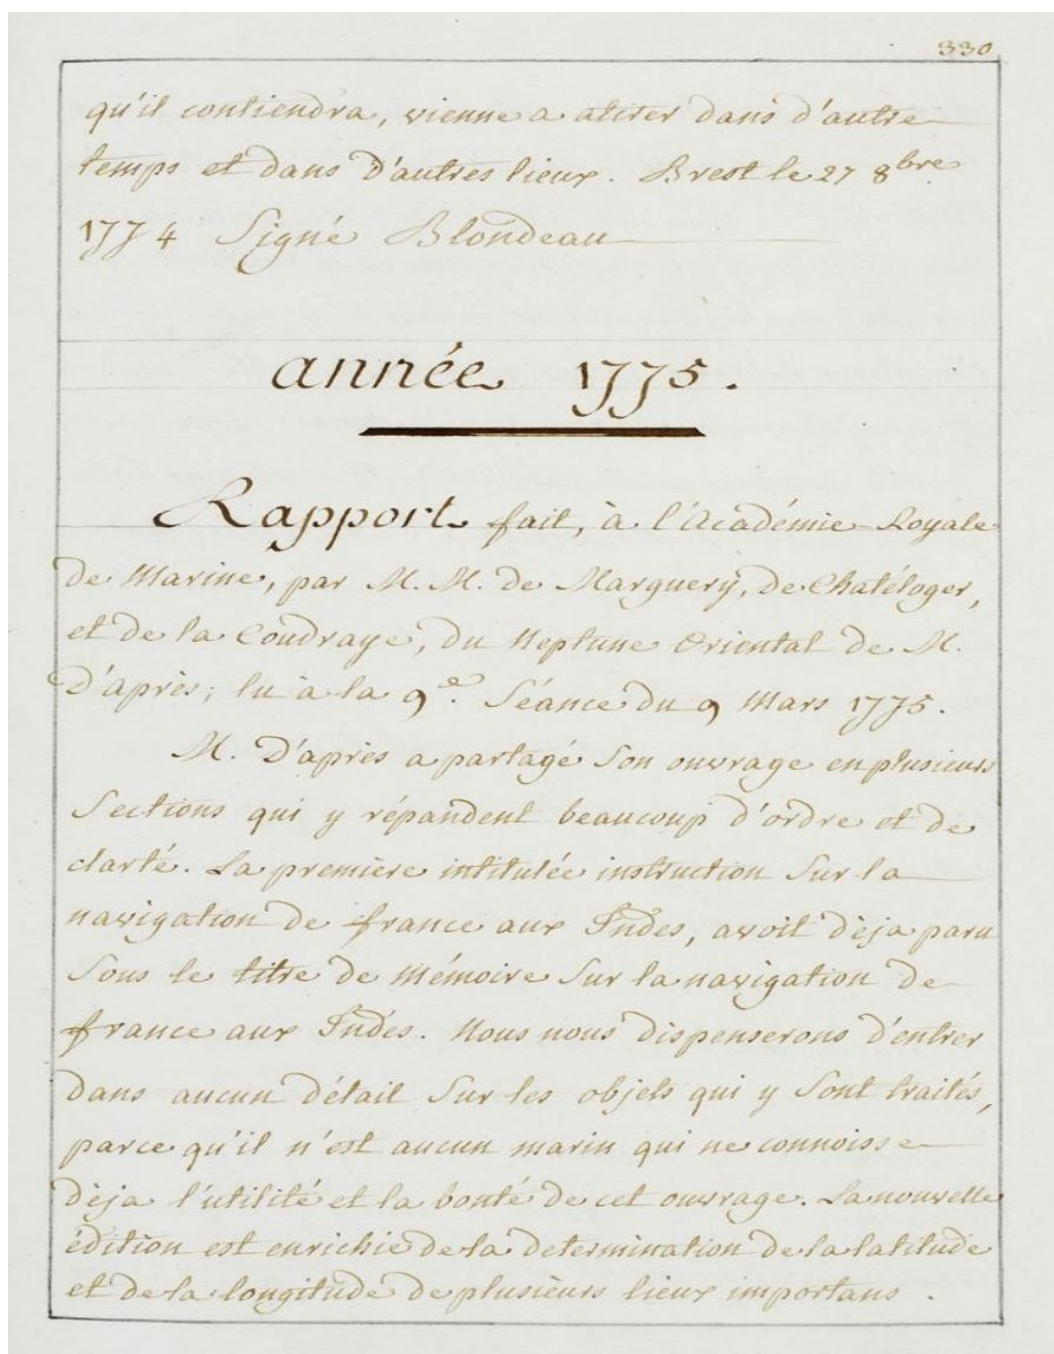 330
qu'il contiendra, vienne a atirer dans d'autre
temps et dans d'autres lieux. Brest le 27 8bre
1774 Signé Blondeau
année 1775.
Rapport fait, à l'Académie Royale
de Marine, par M. M. de Marguerÿ, de Chatéloger,
et de la Coudraye, du Neptune Oriental de M.
D'après; lu à la 9e. Séance du 9 Mars 1775.
M. D'après a partagé Son ouvrage en plusieurs
Sections qui y répandent beaucoup d'ordre et de
clarté. La première intitulée instruction Sur la
navigation de france aux Indes, avoit dèja paru
Sous le titre de Mémoire Sur la navigation de
france aux Indes. Nous nous dispenserons d'entrer
dans aucun détail Sur les objets qui y Sont traités,
parce qu'il n'est aucun marin qui ne connoisse
dèja l'utilité et la bonté de cet ouvrage. La nouvelle
édition est enrichie de la determination de la latitude
et de la longitude de plusieurs lieux importans.